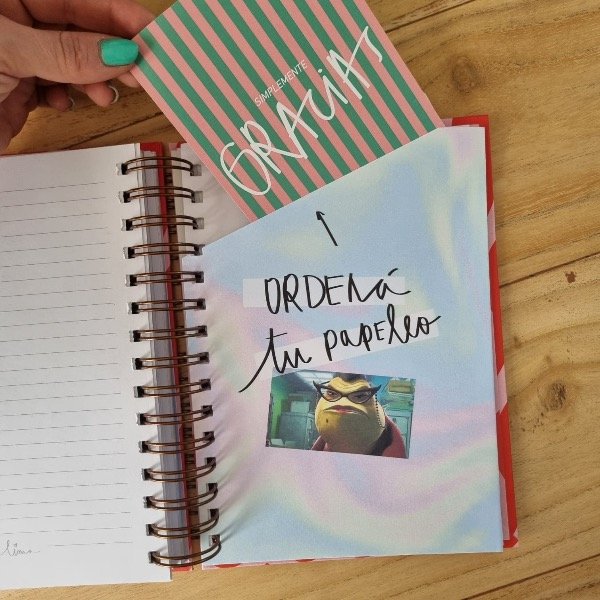 SIMPLEMENTE
GRACIAS
ORDENÁ
tu papeleo